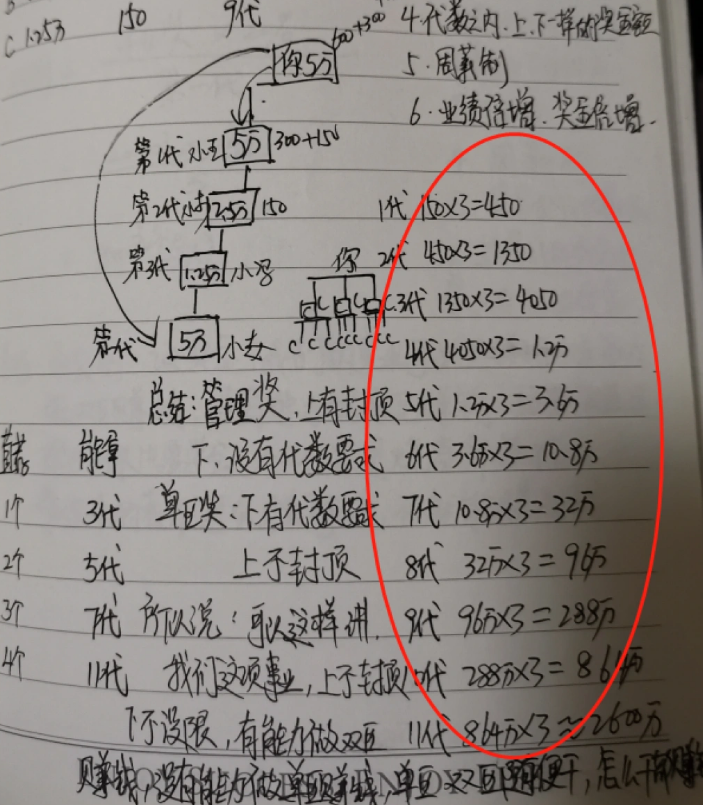 C 1.25万 150 9代
600+300 4.代数之内.上.下一样的奖金额
你5万
5.周薪制
6.业绩倍增.奖金倍增.
第1代 小王 5万 300+150
第2代 小李 2.5万 150 1代 150×3=450
第3代 1.25万 小冯 你 2代 450×3=1350
C C C 3代 1350×3=4050
5万 小女 C C C C C C C 4代 4050×3=1.2万
总结:管理奖,上有封顶 5代 1.2万×3=3.6万
能拿 下.没有代数要求 6代 3.6万×3=10.8万
1个 3代 单巨奖:下有代数要求 7代 10.8万×3=32万
2个 5代 上不封顶 8代 32万×3=96万
3个 7代 所以说:可以这样讲, 9代 96万×3=288万
4个 11代 我们这项事业,上不封顶 10代 288万×3=864万
下不设限,有能力做双巨 11代 864万×3≈2600万
赚钱,没有能力做单巨赚钱,单巨双巨